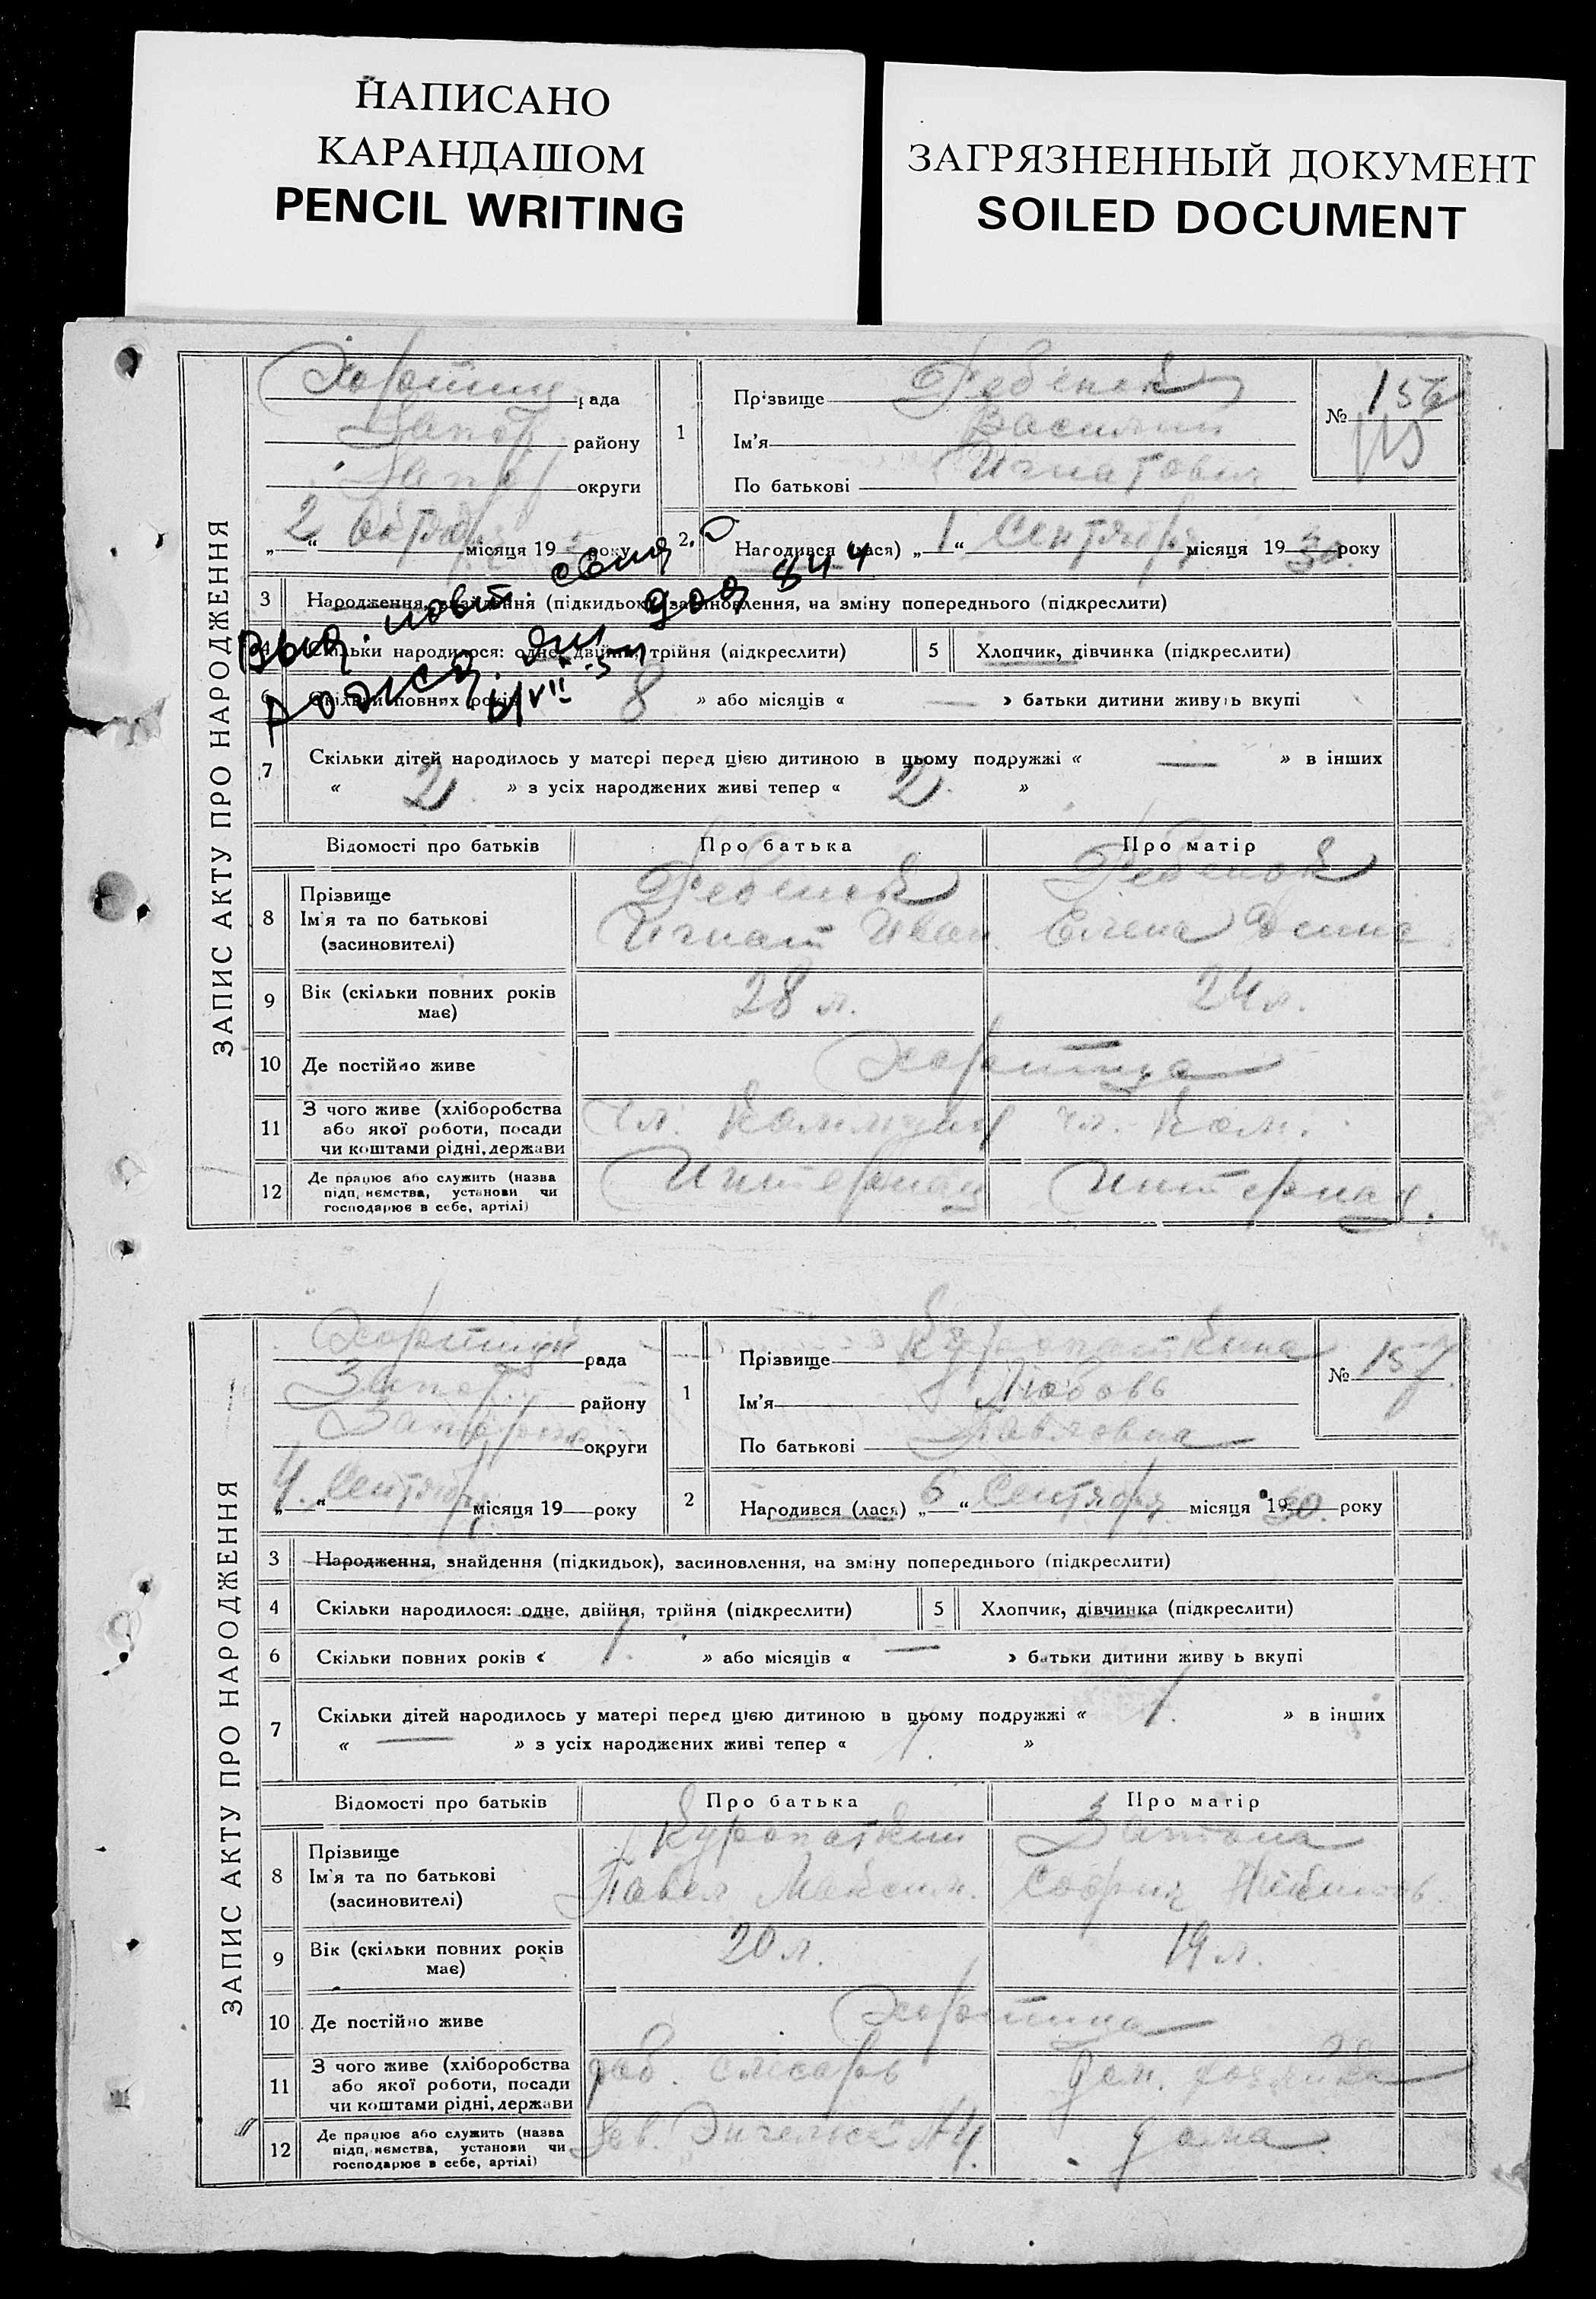 НАПИСАНО
КАРАНДАШОМ
PENCIL WRITING
ЗАГРЯЗНЕННЫЙ ДОКУМЕНТ
SOILED DOCUMENT
ЗАПИС АКТУ ПРО НАРОДЖЕННЯ
рада
Запор району
Запор округи
„2“ Октября місяця 19 року
1
Прізвище Ребенок
Ім'я Василий
По батькові Игнатович
№ 156
2 Народився (лася) „1“ Сентября місяця 1930 року
3 Народження, знайдення (підкидьок), засиновлення, на зміну попереднього (підкреслити)
4 Скільки народилося: одне, двійня, трійня (підкреслити)
5 Хлопчик, дівчинка (підкреслити)
6 Скільки повних років « 8 » або місяців « — » батьки дитини живуть вкупі
7 Скільки дітей народилось у матері перед цією дитиною в цьому подружжі « — » в інших
« 2 » з усіх народжених живі тепер « 2 »
Відомості про батьків Про батька Про матір
8 Прізвище
Ім'я та по батькові
(засиновителі)
Ребенок
Игнат Иван.
Ребенок
Елена
9 Вік (скільки повних років
має)
28 л. 24 л.
10 Де постійно живе Хортица
11 З чого живе (хліборобства
або якої роботи, посади
чи коштами рідні, держави
чл. Коммуны чл. Ком.
12 Де працює або служить (назва
підприємства, установи чи
господарює в себе, артілі)
Интернац Интернац.
ЗАПИС АКТУ ПРО НАРОДЖЕННЯ
рада
Запор. району
округи
„4“ Сентября місяця 19 року
1
Прізвище Куропаткина
Ім'я Любовь
По батькові Павловна
№ 157.
2 Народився (лася) „6“ Сентября місяця 1930. року
3 Народження, знайдення (підкидьок), засиновлення, на зміну попереднього (підкреслити)
4 Скільки народилося: одне, двійня, трійня (підкреслити)
5 Хлопчик, дівчинка (підкреслити)
6 Скільки повних років « 1. » або місяців « — » батьки дитини живуть вкупі
7 Скільки дітей народилось у матері перед цією дитиною в цьому подружжі « 1. » в інших
« — » з усіх народжених живі тепер « 1. »
Відомості про батьків Про батька Про матір
8 Прізвище
Ім'я та по батькові
(засиновителі)
Куропаткин
Павел Максим.
София
9 Вік (скільки повних років
має)
20 л. 19 л.
10 Де постійно живе Хортица
11 З чого живе (хліборобства
або якої роботи, посади
чи коштами рідні, держави
раб. слесарь дом. хозяйка
12 Де працює або служить (назва
підприємства, установи чи
господарює в себе, артілі)
Зав. Энгельса №4. дома